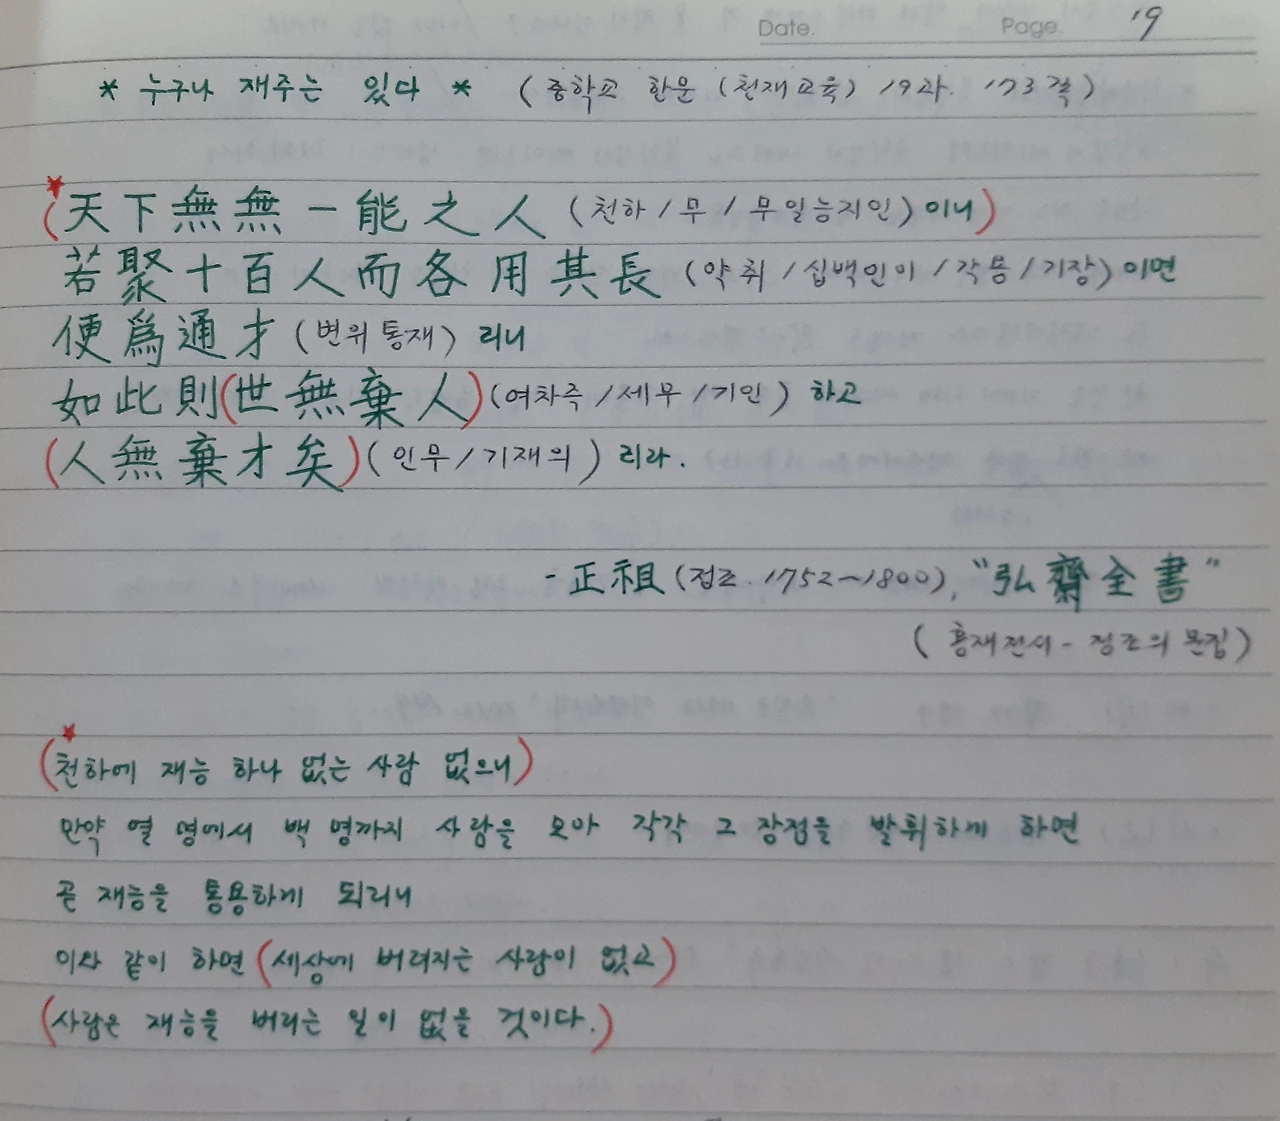 Date. Page. 19
* 누구나 재주는 있다 * (중학교 한문 (천재교육) 19과. 173쪽)
(天下無無一能之人 (천하/무/무일능지인) 이니)
若聚十百人而各用其長 (약취/십백인이/각용/기장) 이면
便爲通才 (변위통재) 리니
如此則(世無棄人) (여차즉/세무/기인) 하고
(人無棄才矣) (인무/기재의) 리라.
- 正祖 (정조. 1752~1800), "弘齋全書"
(홍재전서 - 정조의 문집)
(천하에 재능 하나 없는 사람 없으니)
만약 열 명에서 백 명까지 사람을 모아 각각 그 장점을 발휘하게 하면
곧 재능을 통용하게 되리니
이와 같이 하면 (세상에 버려지는 사람이 없고)
(사람은 재능을 버리는 일이 없을 것이다.)